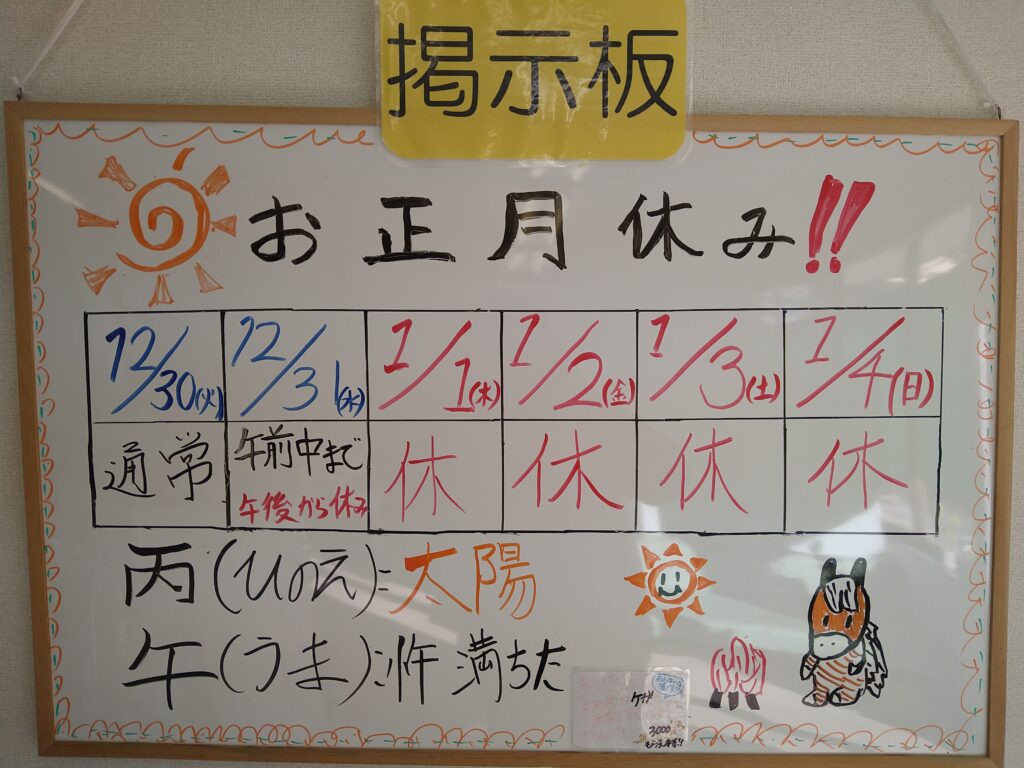 掲示板
お正月休み!!
12/30(火) 12/31(水) 1/1(木) 1/2(金) 1/3(土) 1/4(日)
通常 午前中まで 休 休 休 休
午後から休み
丙(ひのえ):太陽
午(うま):忤 満ちた
ケガ
3000円